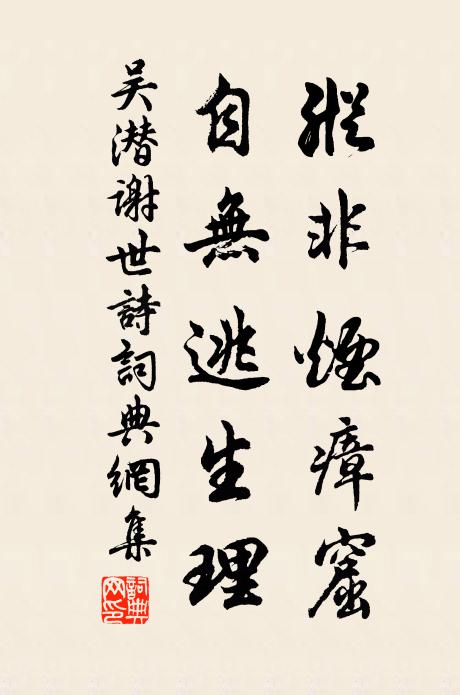 縱非煙瘴窟
自無逃生理
吴潛谢世詩詞典網集
詞典網印